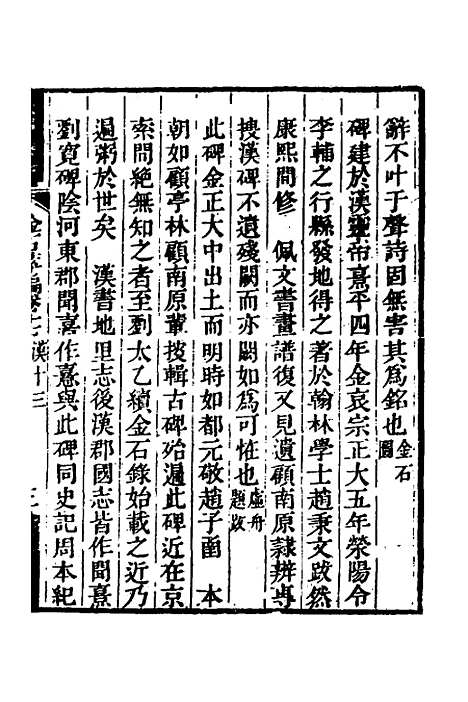 辭不叶于聲詩固無害其爲銘也金石圖
碑建於漢靈帝熹平四年金哀宗正大五年滎陽令
李輔之行縣發地得之著於翰林學士趙秉文跋然
康熙間修 佩文書畫譜復又見遺顧南原隸辨專
搜漢碑不遺殘闕而亦闕如爲可怪也虛舟題跋
此碑金正大中出土而明時如都元敬趙子函 本
朝如顧亭林顧南原輩搜輯古碑殆遍此碑近在京
索間絕無知之者至劉太乙續金石錄始載之近乃
遍粥於世矣 漢書地里志後漢郡國志皆作聞熹
劉寬碑陰河東郡聞喜作憙與此碑同史記周本紀
漢十三
三